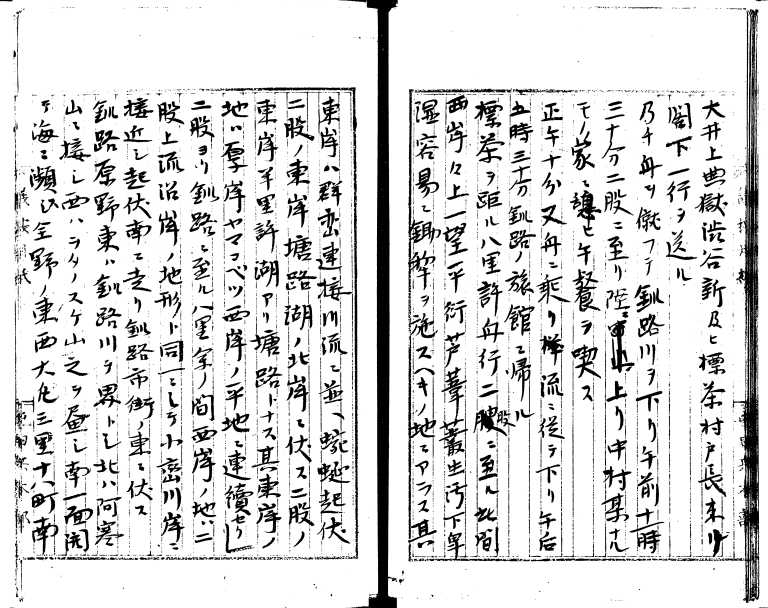 大井上典獄渋谷新及ヒ標茶村戸長来リ
閣下一行ヲ送ル
乃チ舟ヲ僦フテ釧路川ヲ下リ午前十一時
三十分二股ニ至リ陸ニ上リ中村某ナル
モノヽ家ニ憩ヒ午餐ヲ喫ス
正午十分又舟ニ乗リ流ニ従テ下リ午后
五時三十分釧路ノ旅館ニ帰ル
標茶ヲ距ル八里許舟行二股ニ至ル此間
西岸々上一望平衍芦葦叢生汚下卑
湿容易ニ鋤犂ヲ施スヘキノ地ニアラス其
東岸ハ群巒連接川流ニ並ヘ蜿蜒起伏
二股ノ東岸塘路湖ノ北岸ニ伏ス二股ノ
東岸半里許湖アリ塘路トナス其東岸ノ
地ハ厚岸ヤマコベツ西岸ノ平地ニ連續セリ
二股ヨリ釧路ニ至ル八里余ノ間西岸ノ地ハ二
股上流沿岸ノ地形ト同一ニシテ小巒川岸ニ
接近シ起伏南ニ走リ釧路市街ノ東ニ伏ス
釧路原野東ハ釧路川ヲ界トシ北ハ阿寒
山ニ接シ西ハラタノスケ山之ヲ画シ南一面開
テ海ニ瀕ス全野ノ東西大凡三里十八町南